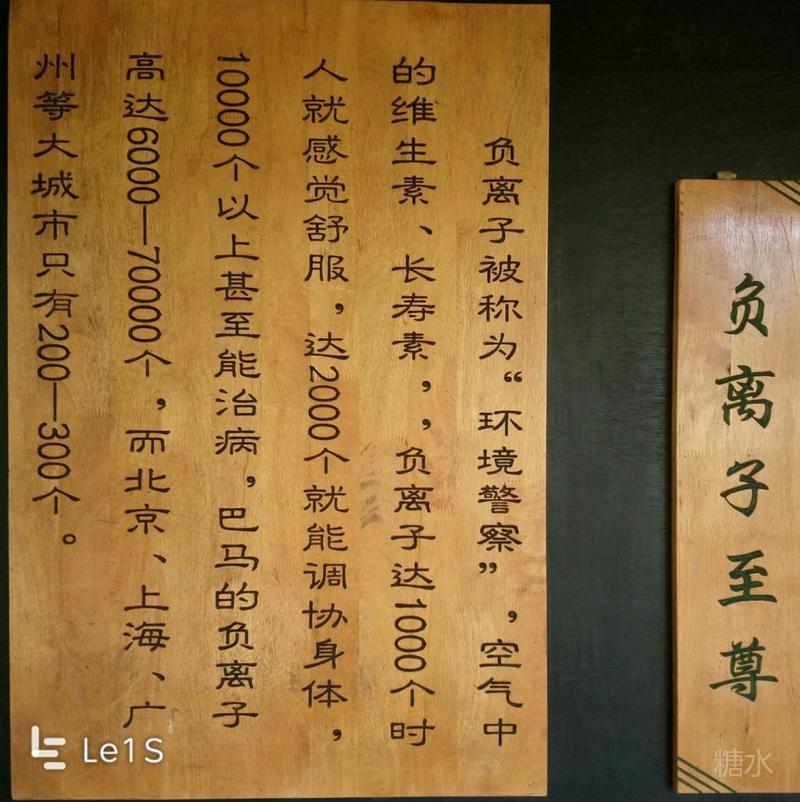 负离子至尊
负离子被称为“环境警察”，空气中
的维生素、长寿素，，负离子达1000个时
人就感觉舒服，达2000个就能调协身体，
10000个以上甚至能治病，巴马的负离子
高达6000—70000个，而北京、上海、广
州等大城市只有200—300个。
Le1S
糖水